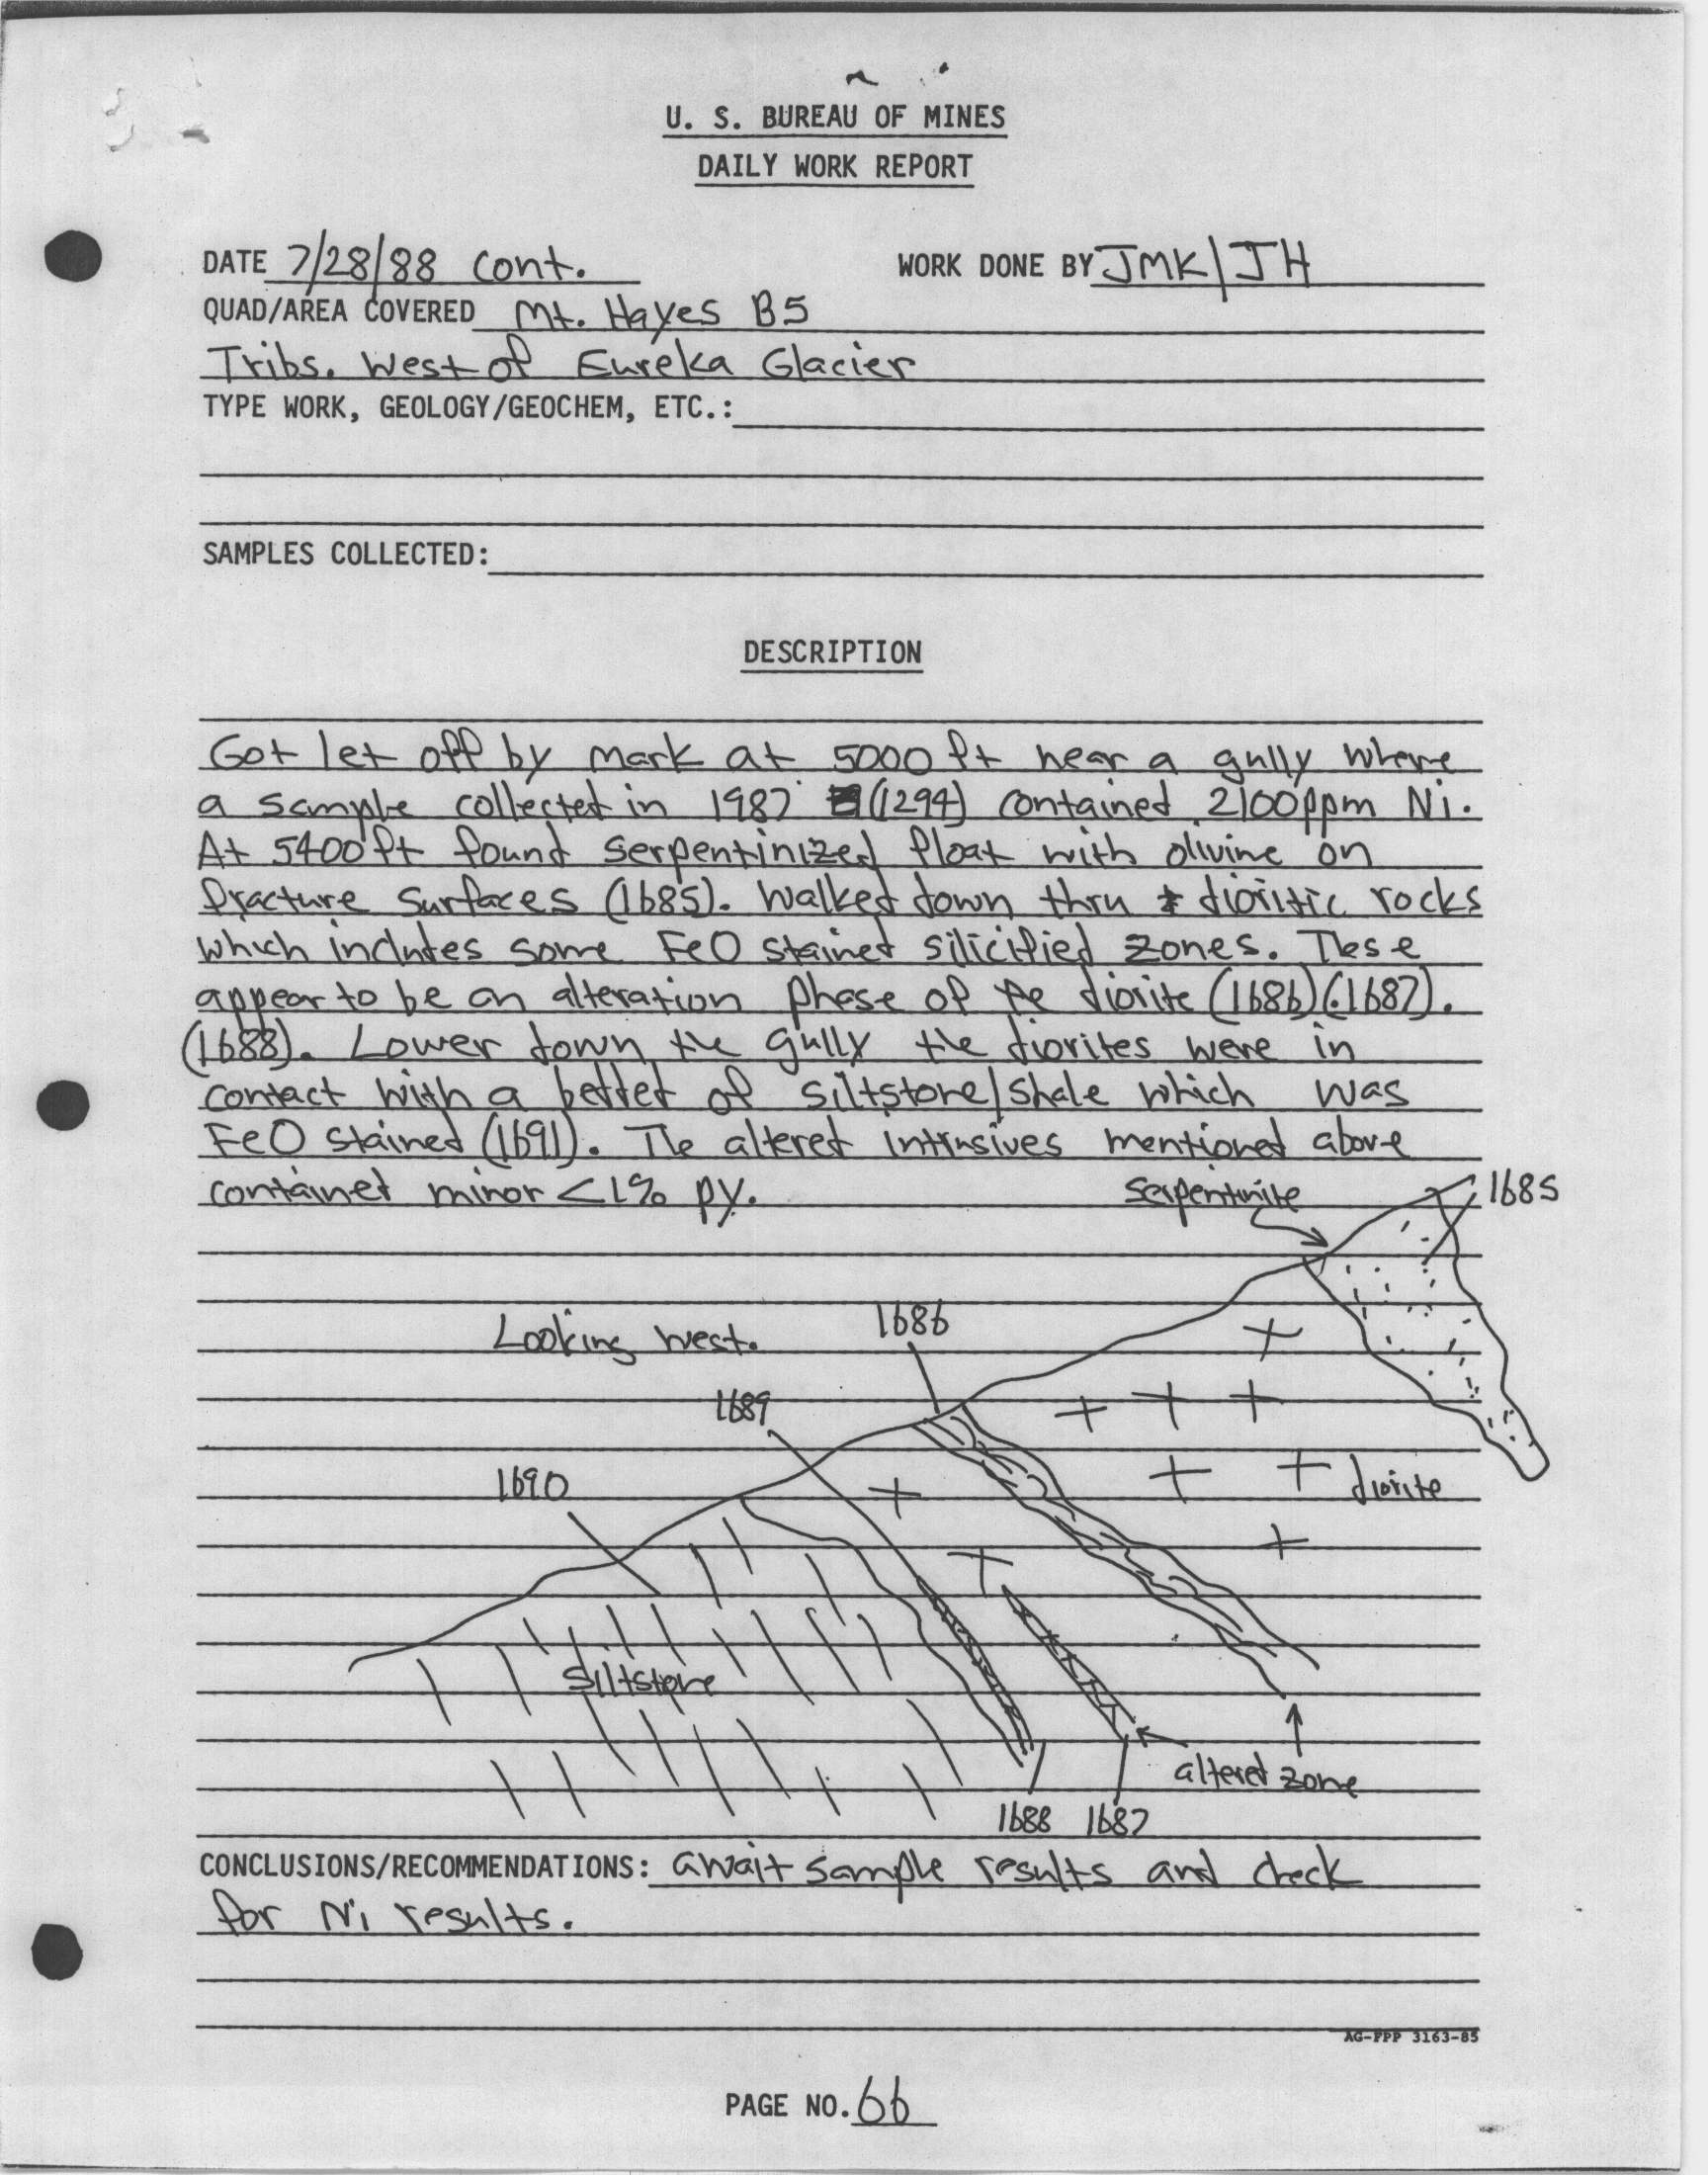 U. S. BUREAU OF MINES
DAILY WORK REPORT
DATE 7/28/88 cont. WORK DONE BY JMK/JH
QUAD/AREA COVERED Mt. Hayes B5
Tribs. West of Eureka Glacier
TYPE WORK, GEOLOGY/GEOCHEM, ETC.:
SAMPLES COLLECTED:
DESCRIPTION
Got let off by Mark at 5000 ft near a gully where
a sample collected in 1987 (1294) contained 2100ppm Ni.
At 5400 ft found serpentinized float with olivine on
fracture surfaces (1685). Walked down thru dioritic rocks
which includes some FeO stained silicified zones. These
appear to be an alteration phase of the diorite (1686)(1687).
(1688). Lower down the gully the diorites were in
contact with a bedded of siltstone/shale which was
FeO stained (1691). The altered intrusives mentioned above
contained minor <1% py.
serpentinite
1685
Looking west.
1686
1689
1690
diorite
siltstone
altered zone
1688 1687
CONCLUSIONS/RECOMMENDATIONS: await sample results and check
for Ni results.
AG-FPP 3163-85
PAGE NO. 66